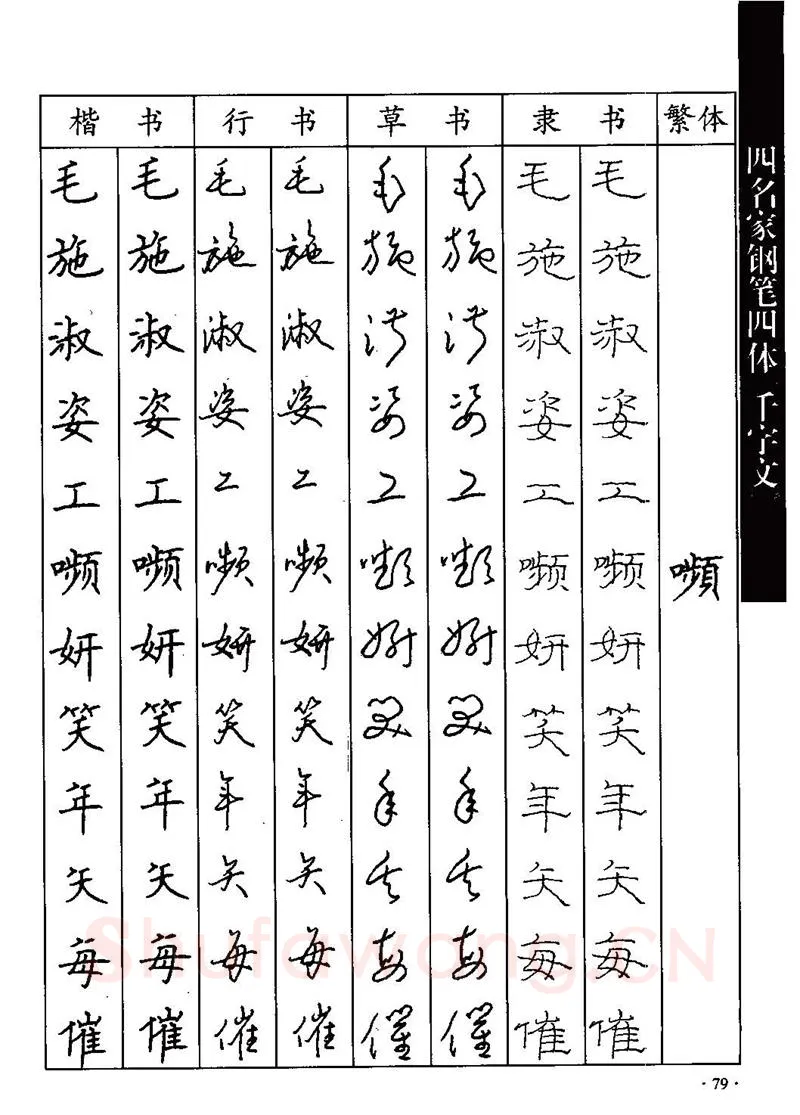 楷书 行书 草书 隶书 繁体
毛 毛 毛 毛 毛 毛 毛 毛
施 施 施 施 施 施 施 施
淑 淑 淑 淑 淑 淑 淑 淑
姿 姿 姿 姿 姿 姿 姿 姿
工 工 工 工 工 工 工 工
嚬 嚬 嚬 嚬 嚬 嚬 嚬 嚬 嚬
妍 妍 妍 妍 妍 妍 妍 妍
笑 笑 笑 笑 笑 笑 笑 笑
年 年 年 年 年 年 年 年
矢 矢 矢 矢 矢 矢 矢 矢
每 每 每 每 每 每 每 每
催 催 催 催 催 催 催 催
四名家钢笔四体 千字文
Shufawang.CN
·79·